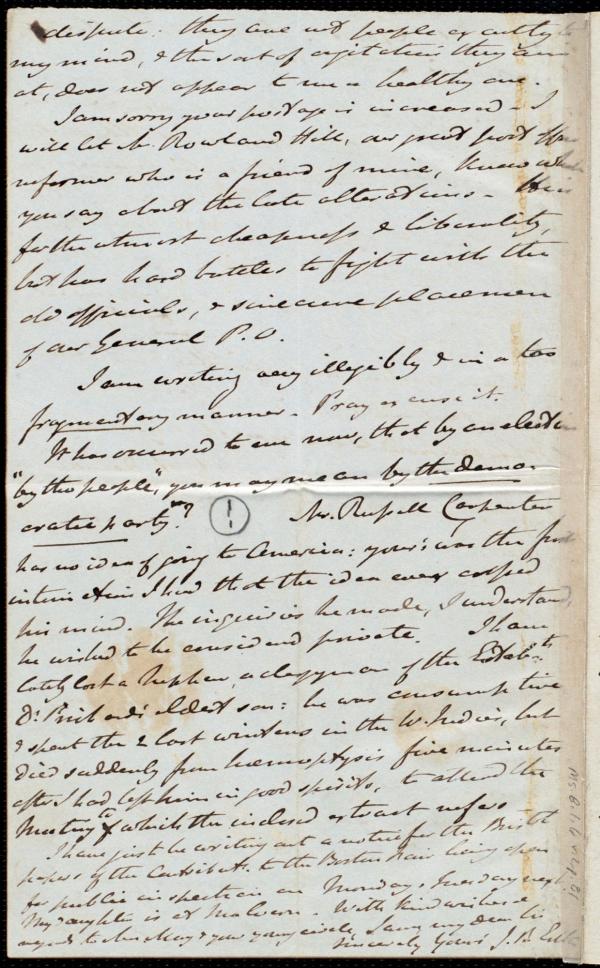 dispute: they are not people exactly to
my mind, & the sort of agitation they aim
at, does not appear to me a healthy one.
I am sorry your postage is increased - I
will let Mr. Rowland Hill, our great post office
reformer who is a friend of mine, know what
you say about the late alterations - He is
for the utmost cheapness & liberality,
but has hard battles to fight with the
old officials, & sinecure placemen
of our General P.O.
I am writing very illegibly & in a too
fragmentary manner - Pray excuse it.
It has occurred to me now, that by an election
"by the people", you may mean by the demo-
cratic party"?
Mr. Russell Carpenter
has no idea of going to America: your's was the first
intimation I had that the idea ever crossed
his mind. The inquiries he made, I understand,
he wished to be considered private. I have
lately lost a Nephew, a clergyman of the Establ:nt
Dr. Prichard's eldest son: he was consumptive
& spent the 2 last winters in the W. Indies, but
died suddenly from hæmoptysis five minutes
after I had left him in good spirits, to attend the
Meeting to which the inclosed extract refers
I have just been writing out a notice for the Bristol
papers of the Contribns. to the Boston Fair being open
for public inspection on Monday & Tuesday next.
My daughter is at Malvern - With kind wishes &
regards to Mrs May & your young circle, I am, my dear Sir
sincerely Yours J. B. Estlin
Ms.B.1.6 v.2, p.81